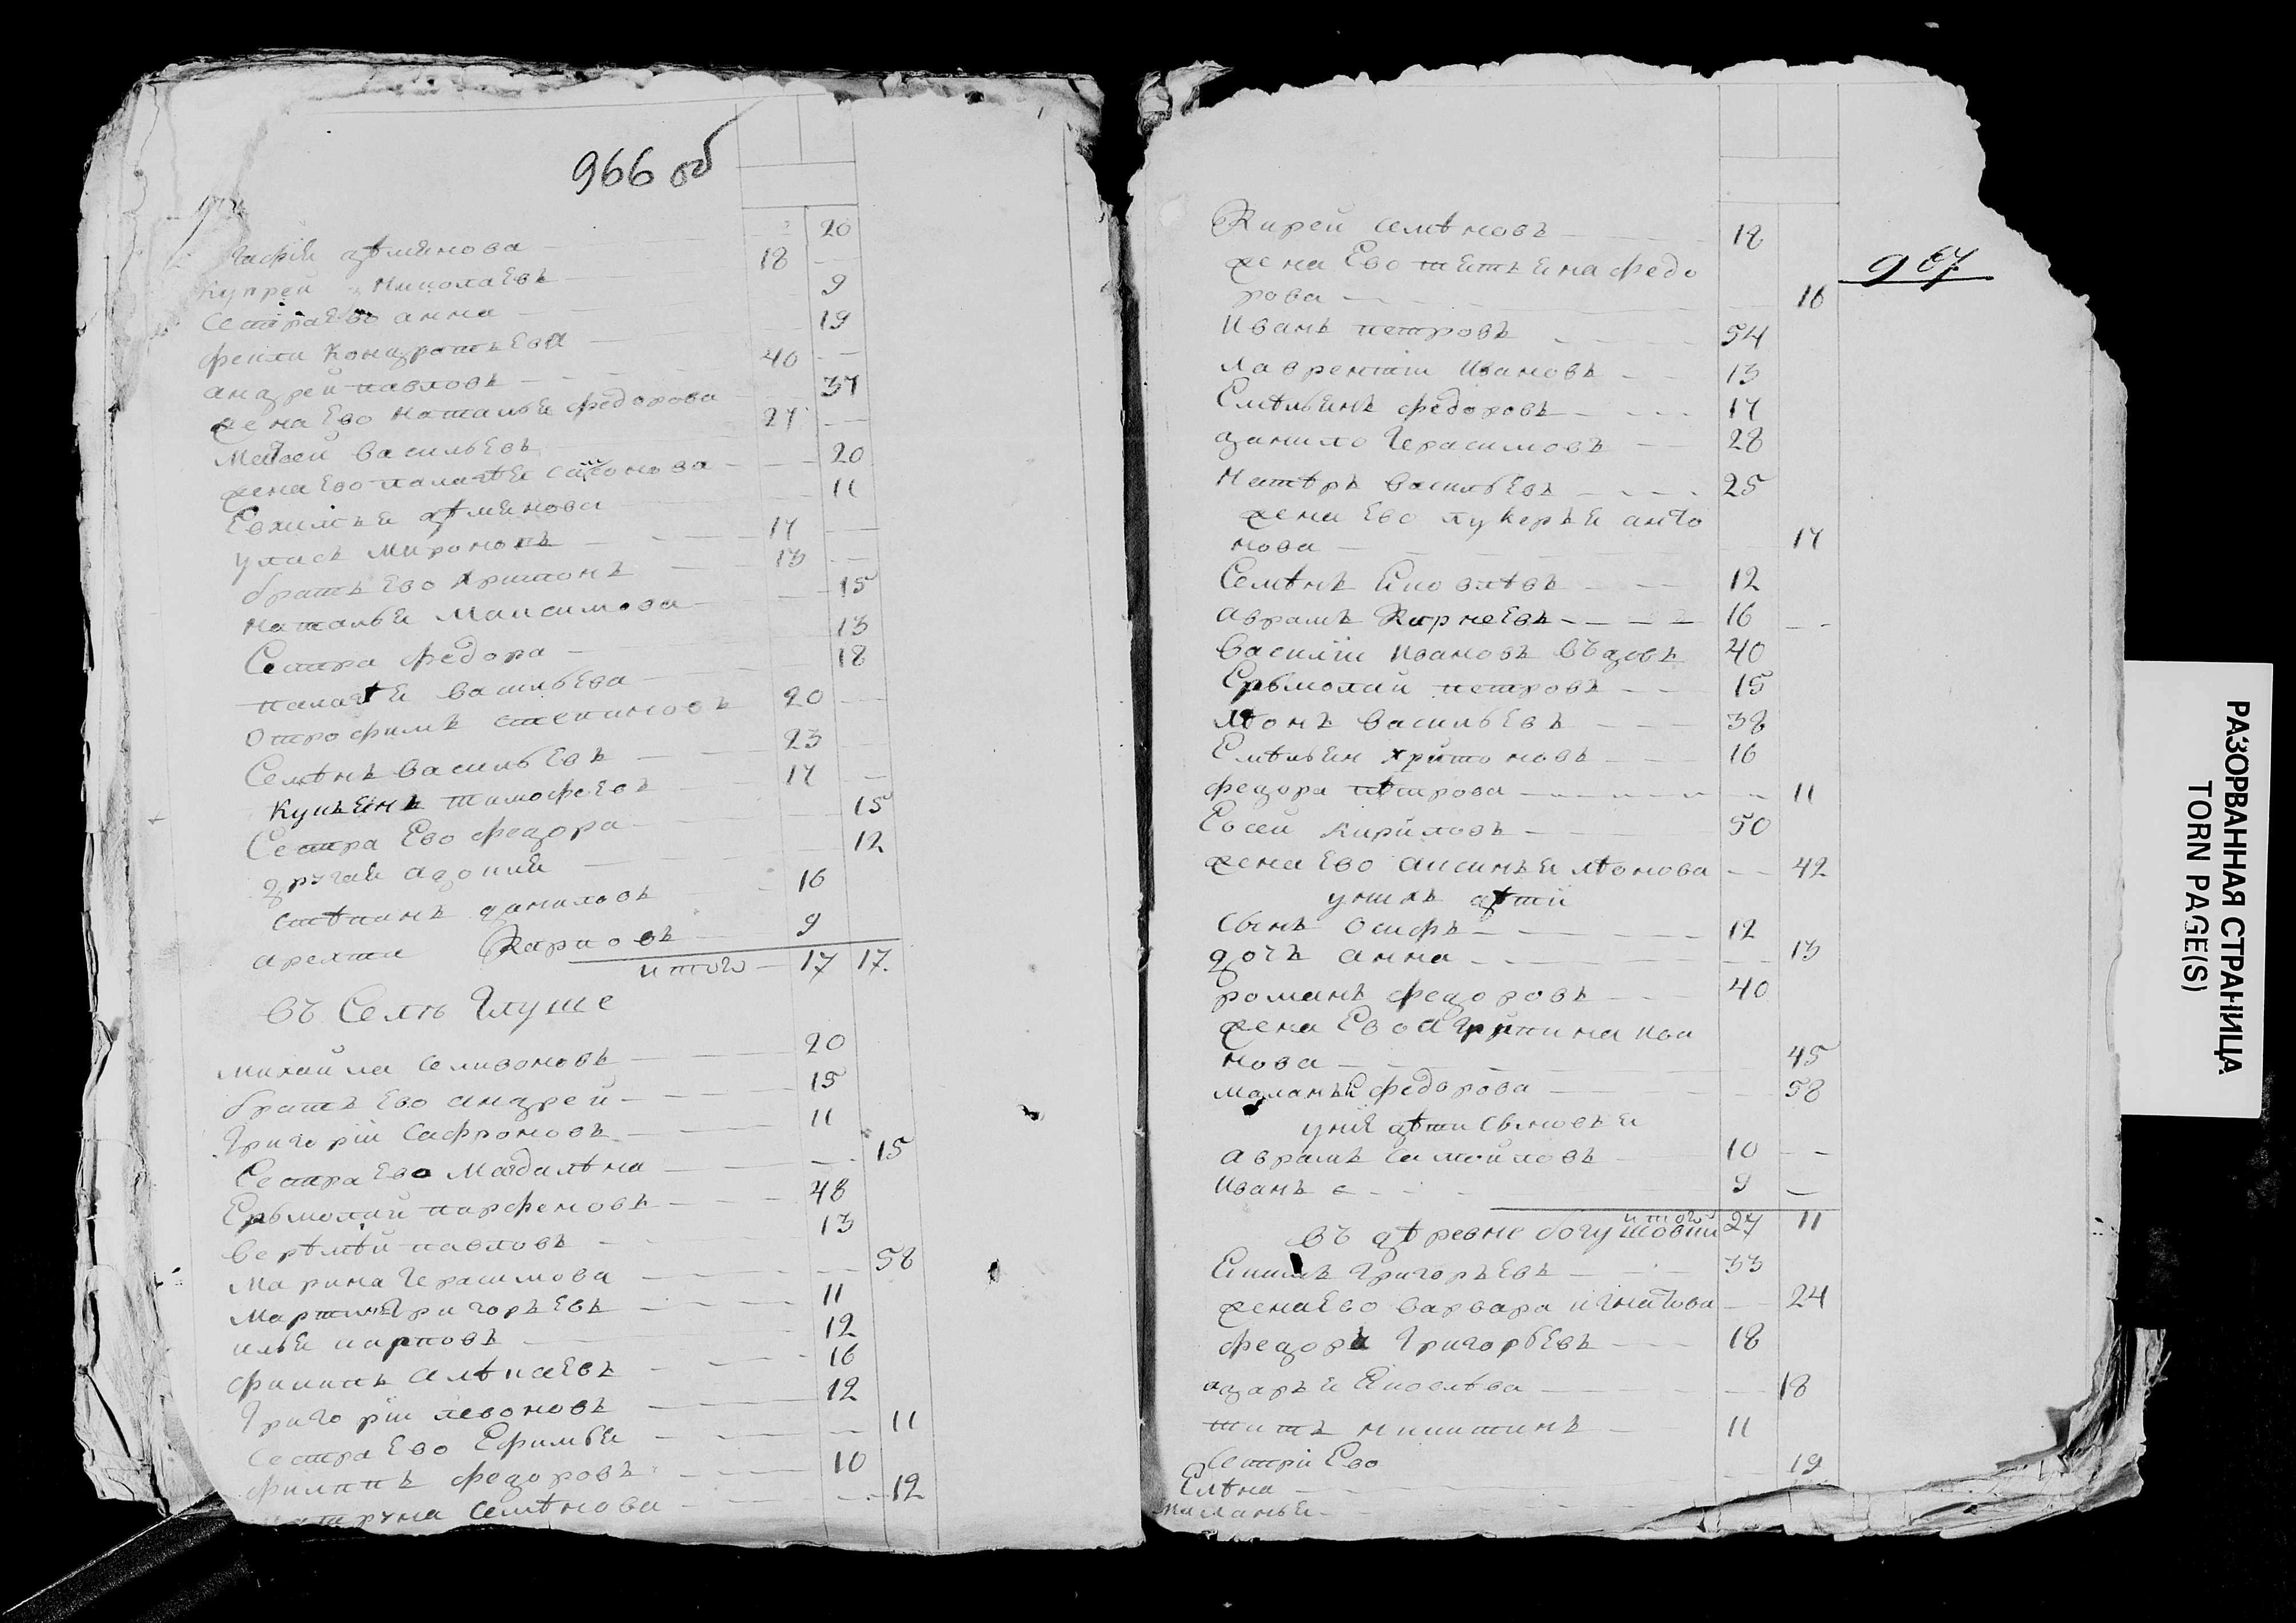 966 об
Гафия дѣмянова — 20
Купрей Николаевъ — 18
Сестра Ево анна — 9
фекла Кондратьева — 19
андрей павловъ — 40
жена Ево Наталья федорова — 37
Матвей васильевъ — 27
жена Ево палагѣя сафонова — 20
Евхимья дѣмянова — 11
Уласъ Мироновъ — 17
братъ Ево Харитонъ — 13
Наталья Максимова — 15
Сестра федора — 13
палагѣя васильева — 18
Отрофимъ степановъ 20
Семѣнъ васильевъ — 23
Кузьминъ тимофеевъ — 17
Сестра Ево федора — 15
другая авдотия — 12
стѣпанъ даниловъ — 16
арехта Карповъ — 9
итого — 17 17.
въ Селѣ Глуше
михайла Селивоновъ — 20
братъ Ево андрей — 15
Григорій Сафроновъ — 11
Сестра Ево Магдалѣна — 15
Ерьмолай парфеновъ — 48
верѣмѣй павловъ — 13
Марина Герасимова — 58
Мартинъ Григорьевъ — 11
илья карповъ — 12
филипъ алѣксаевъ — 16
Григорій левоновъ — 12
сестра Ево Ефимья — 11
филипъ федоровъ — 10
Семѣнова — 12
967
Кирей семѣновъ — 18
жена Ево тѣтьяна федо
рова — 16
Иванъ петровъ — 54
лаврентій Ивановъ — 13
Емѣльянъ федоровъ — 17
данило Герасимовъ — 28
Нестѣръ васильевъ — 25
жена Ево лукерья анто
нова — 17
Семѣнъ Яковлѣвъ — 12
аврамъ Карнеевъ — 16
василій Ивановъ въдовъ 40
Ерьмолай петровъ — 15
лѣонъ васильевъ — 38
Емѣльян харитоновъ — 16
федора пѣтрова — 11
Евсей Кириловъ — 50
жена Ево аксинья лѣонова — 42
унихъ дѣти
Сынъ Осифъ — 12
дочъ анна — 13
романъ федоровъ — 40
жена Ево агрипина Ива
нова — 45
маланья федорова — 58
унея дѣти Сыновья
аврамъ Самойловъ — 10
Иванъ — 9
итого 27 11
въ дѣревне богушовки
Якимъ Григорьевъ — 33
жена Ево варвара игнатова — 24
федоръ Григорьевъ — 18
дарья Яковлѣва — 18
титъ микитинъ — 11
Сестри Ево
Елѣна — 19
маланья —
РАЗОРВАННАЯ СТРАНИЦА
TORN PAGE(S)